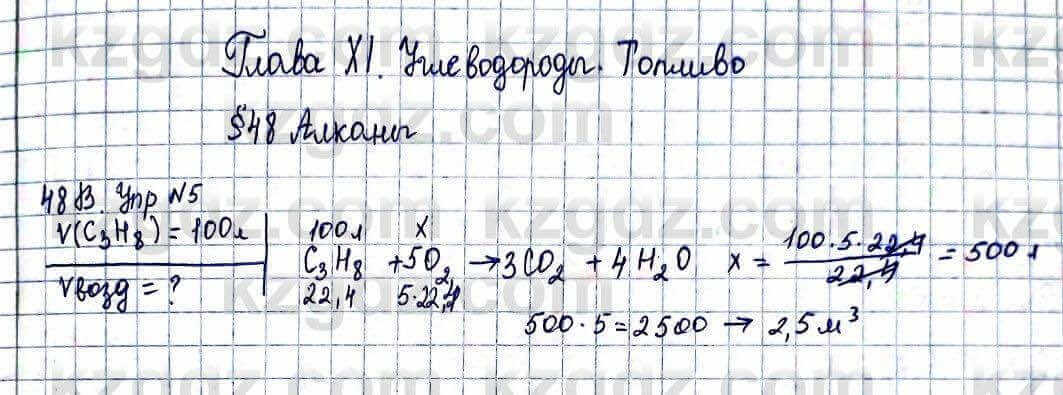 Глава XI. Углеводороды. Топливо
§48 Алканы
48 В. Упр №5
V(C₃H₈) = 100л
Vвозд = ?
100л x
C₃H₈ + 5O₂ → 3CO₂ + 4H₂O x = 100·5·22,4 / 22,4 = 500 л
22,4 5·22,4
500·5 = 2500 → 2,5 м³
kzgdz.com